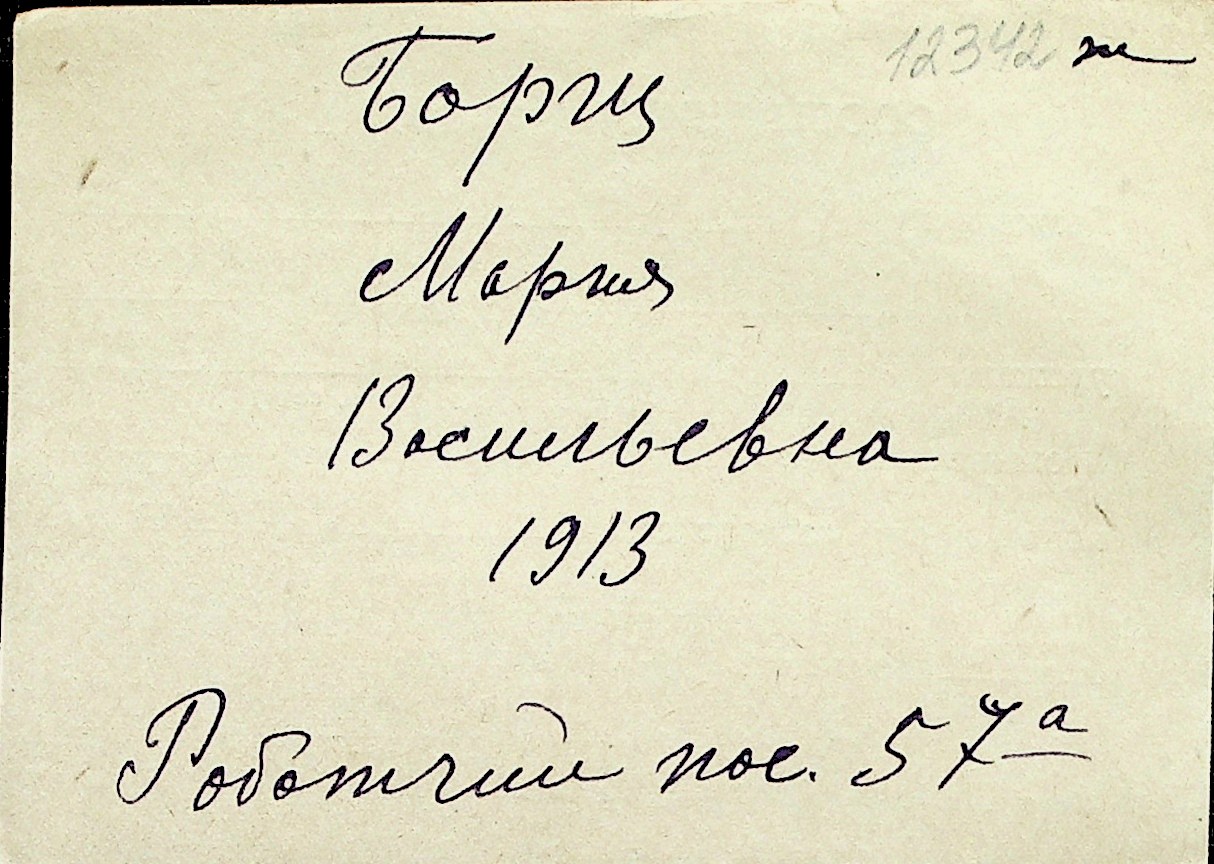 12342 ж
Борщ
Мария
Васильевна
1913
Работчий пос. 57а